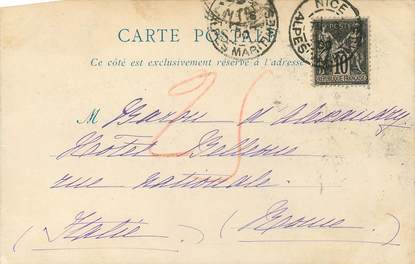 NICE
NICE
ALPES MARITIMES
ALPES
CARTE POSTALE
Ce côté est exclusivement réservé à l'adresse
POSTES
10
REPUBLIQUE FRANÇAISE
25
M Baron d'Alexandry
Hotel Bellevue
rue Nationale.
(Italie) (Rome)